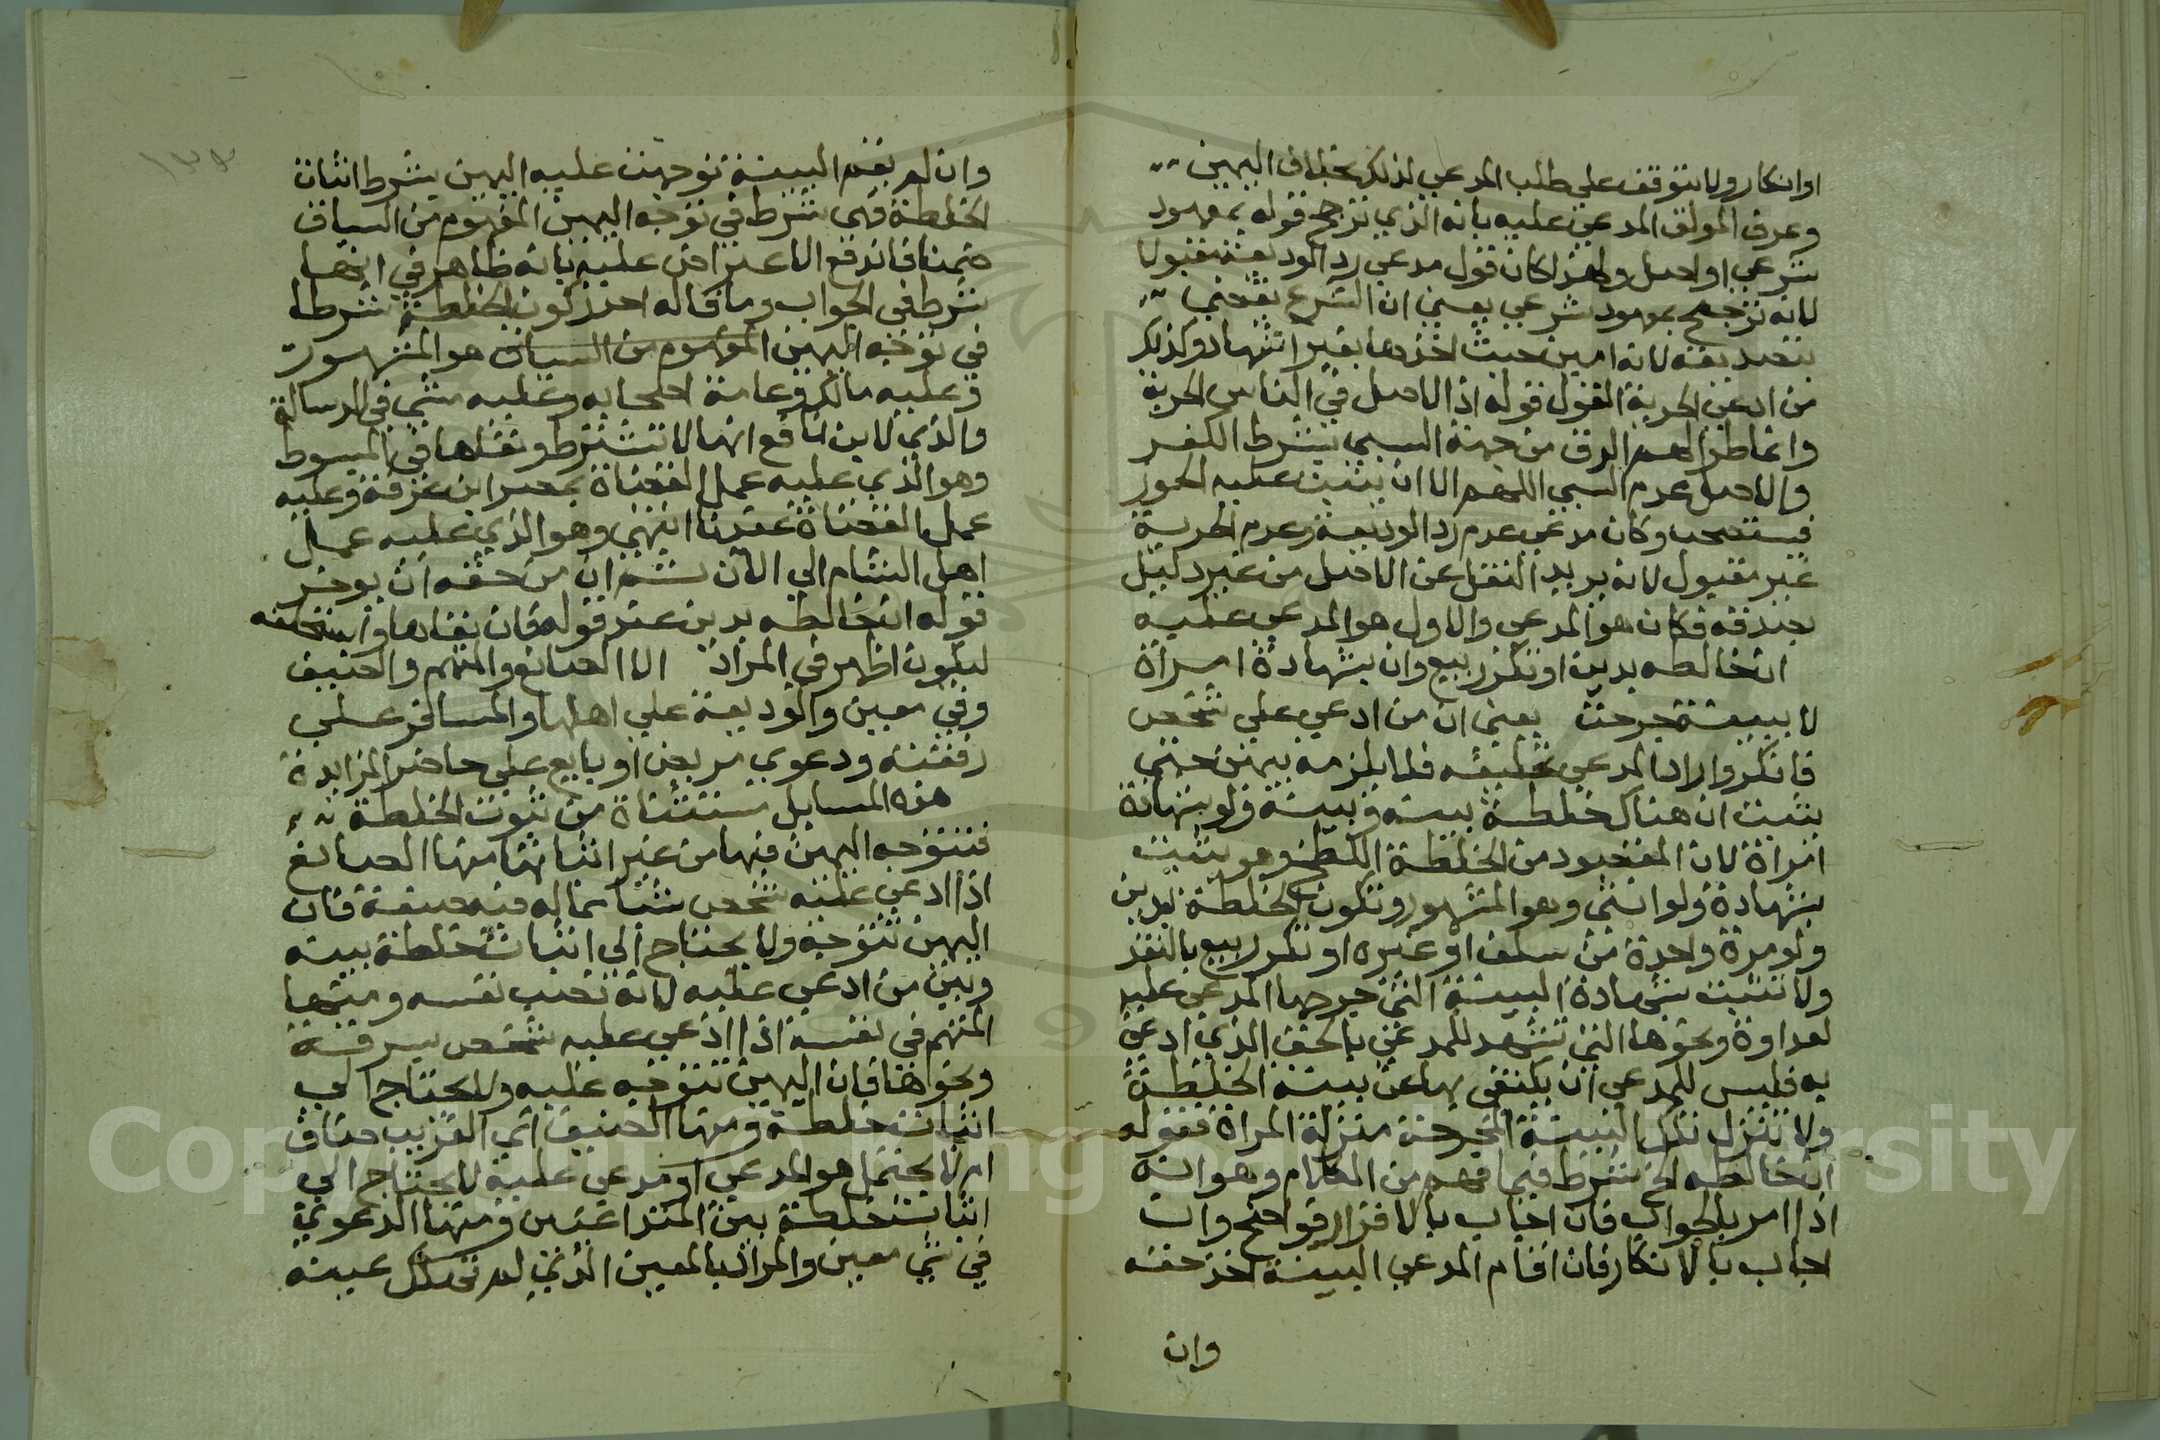 او انكار ولا يتوقف علي طلب المدعي لذلك بخلاف اليمين
وعرف المولف المدعي عليه بانه الذي ترجح قوله بمعهود
شرعي او اصل ولهذا كان قول مدعي رد الوديعة مقبولا
لانه ترجح بمعهود شرعي يعني ان الشرع يقضي
بتصديقه لانه امين حيث اخذها بغير اشهاد وكذلك
من ادعي الحرية القول قوله اذ الاصل في الناس الحرية
وانما طرا لهم الرق من جهة السبي بشرط الكفر
والاصل عدم السبي اللهم الا ان يثبت عليه الحوز
فيستصحب وكان مدعي عدم رد الوديعة وعدم الحرية
غير مقبول لانه يريد النقل عن الاصل من غير دليل
بصدقه فكان هو المدعي والاول هو المدعي عليه
ان خالطه بدين او تكرر بيع وان بشهادة امراة
لا ببينة جرحت يعني ان من ادعي علي شخص
فانكر واراد المدعي تحليفه فلا يلزمه يمين حتي
يثبت ان هناك خلطة بينه وبينه ولو بشهادة
امراة لان المقصود من الخلطة اللطخ وهو يثبت
بشهادة ولو انثي وهو المشهور وتكون الخلطة بدين
ولو مرة واحدة من سلف او غيره او تكرر بيع بالنقد
ولا تثبت بشهادة البينة التي جرحها المدعي عليه
لعداوة ونحوها التي تشهد للمدعي بالحق الذي ادعي
به فليس للمدعي ان يكتفي بها عن بينة الخلطة
ولا تتنزل تلك البينة المجرحة منزلة المراة فقوله
ان خالطه الخ شرط فيما فهم من الكلام وهو انه
اذا امر بالجواب فان اجاب بالاقرار فواضح وان
اجاب بالانكار فان اقام المدعي البينة اخذ حقه
وان
وان لم يقم البينة توجهت عليه اليمين بشرط اثبات
الخلطة فهي شرط في توجه اليمين المفهوم من السياق
ضمنا فاندفع الاعتراض عليه بانه ظاهر في انها
شرط في الجواب وما قاله احد كون الخلطة شرطا
في توجه اليمين المفهوم من السياق هو المشهور
وعليه مالك وعامة اصحابه وعليه مشي في الرسالة
والذي لابن نافع انها لا تشترط ونقلها في المبسوط
وهو الذي عليه عمل القضاة بمصر ابن عرفة وعليه
عمل القضاة عندنا انتهي وهو الذي عليه عمل
اهل الشام الي الان ثم ان من حقه ان يوخر
قوله ان خالطه بدين عند قوله فان نفاها واستحلفه
ليكون اظهر في المراد الا الصانع والمتهم والضيف
وفي معين والوديعة علي اهلها والمسافر علي
رفقته ودعوي مريض او بايع علي حاضر المزايدة
هذه المسايل مستثناة من ثبوت الخلطة
فتتوجه اليمين فيها من غير اثباتها منها الصانع
اذا ادعي عليه شخص شيا مما له فيه صنعة فان
اليمين تتوجه ولا يحتاج الي اثبات خلطة بينه
وبين من ادعي عليه لانه نصب نفسه ومنها
المتهم في نفسه اذا ادعي عليه شخص بسرقة
ونحوها فان اليمين تتوجه عليه ولا يحتاج الي
اثبات خلطة ومنها الضيف اي الغريب ضاف
ام لا يحتمل هو المدعي او مدعي عليه لا يحتاج الي
اثبات خلطة بين المتداعيين ومنها الدعوي
في شي معين والمراد بالمعين الذي لم تستهلك عينه